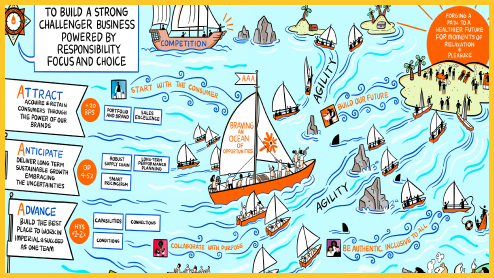 TO BUILD A STRONG
CHALLENGER BUSINESS
POWERED BY
RESPONSIBILITY,
FOCUS AND CHOICE
COMPETITION
FORGING A
PATH TO A
HEALTHIER FUTURE
FOR MOMENTS OF
RELAXATION
&
PLEASURE
AGILITY
ATTRACT
ACQUIRE & RETAIN
CONSUMERS THROUGH
THE POWER OF OUR
BRANDS
BPS
START WITH THE CONSUMER
PORTFOLIO
AND BRAND
SALES
EXCELLENCE
AAA
BRAVING
AN
OCEAN OF
OPPORTUNITIES
BUILD OUR FUTURE
ANTICIPATE
DELIVER LONG TERM
SUSTAINABLE GROWTH
EMBRACING
THE UNCERTAINTIES
OP
4-5%
ROBUST
SUPPLY CHAIN
LONG-TERM
PERFORMANCE
PLANNING
SMART
PRICING/RGM
AGILITY
ADVANCE
BUILD THE BEST
PLACE TO WORK IN
IMPERIAL & SUCCEED
AS ONE TEAM
CAPABILITIES
CONNECTIONS
CONDITIONS
COLLABORATE WITH PURPOSE
BE AUTHENTIC, INCLUSIVE TO ALL